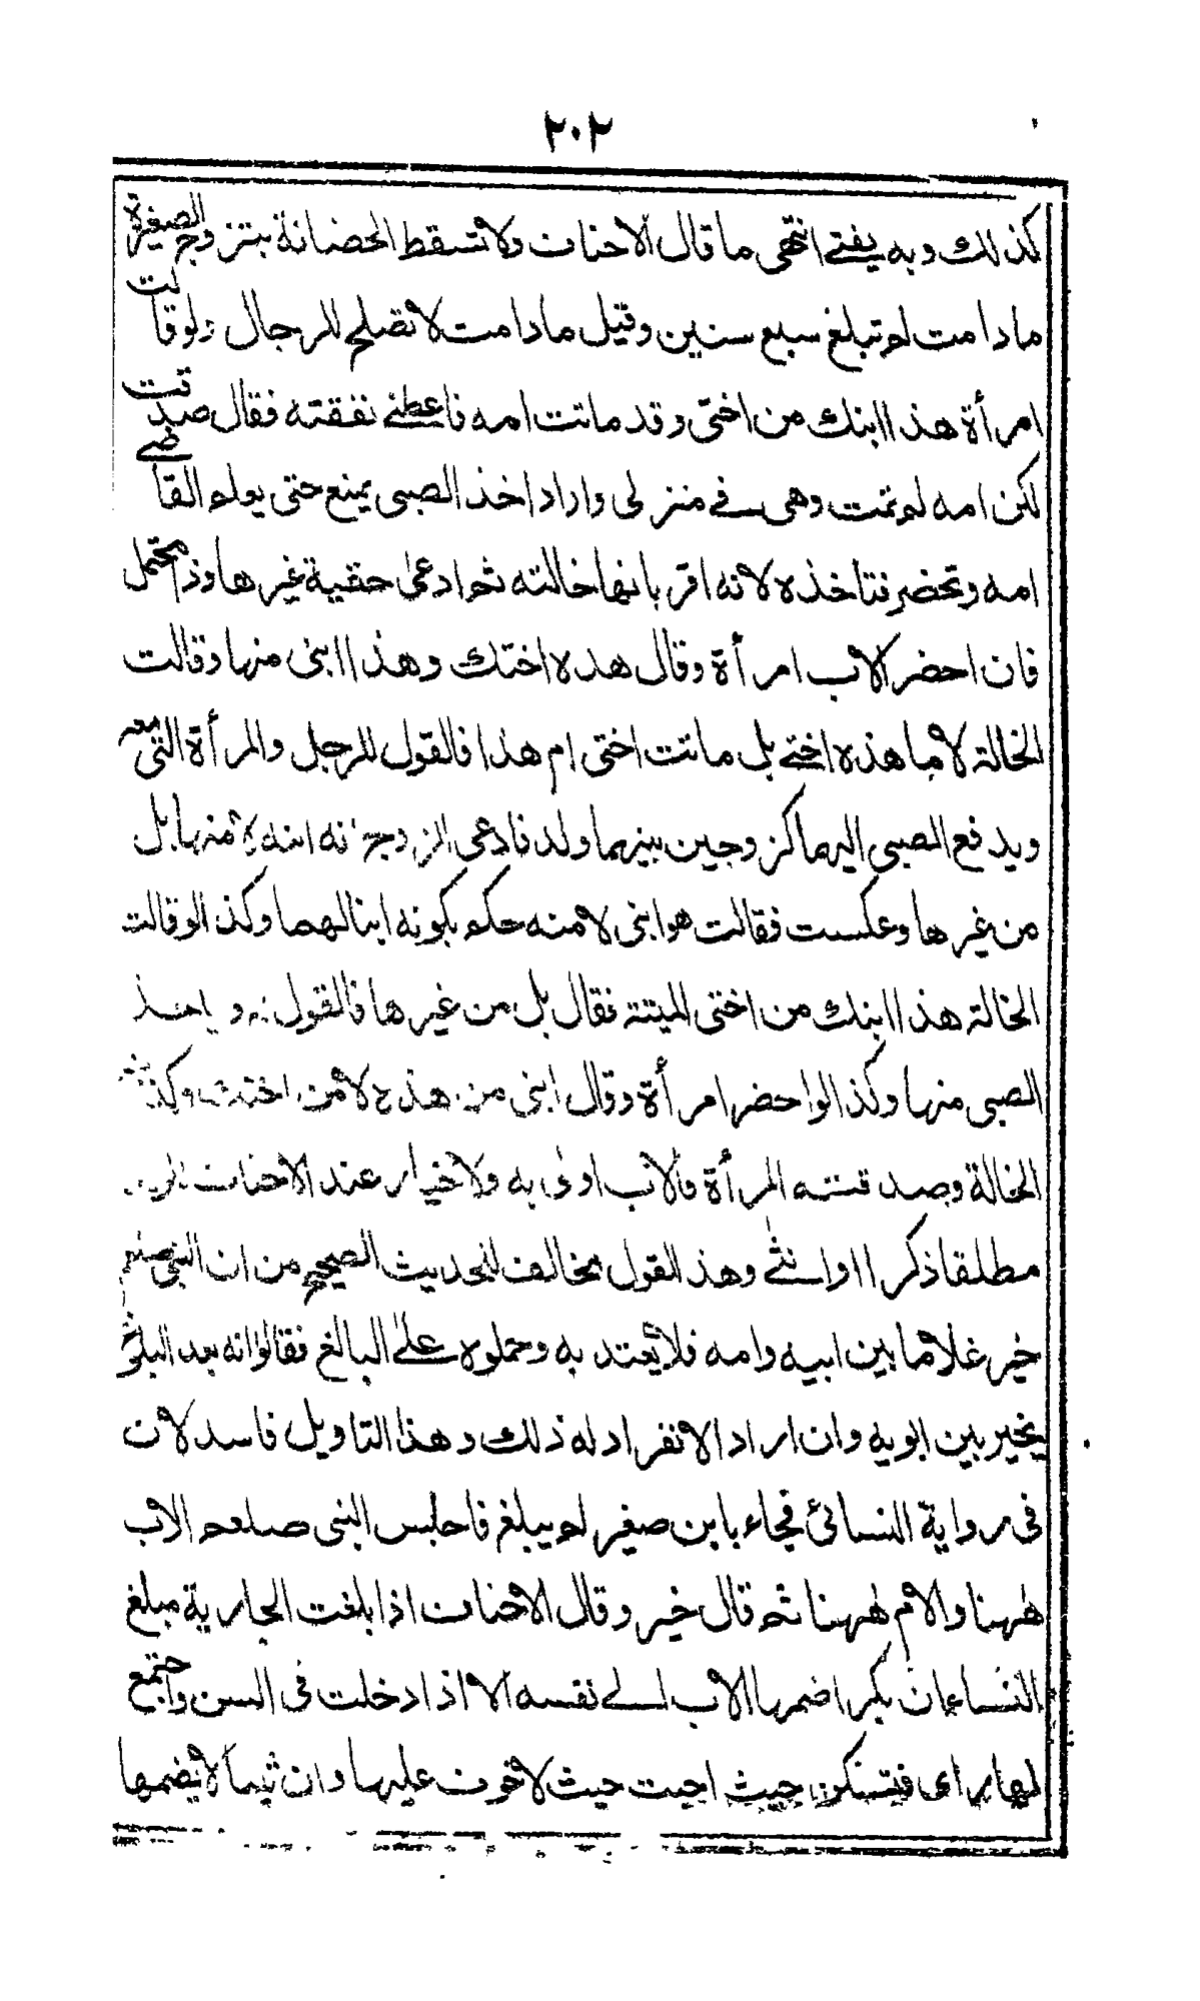 ٢٠٢
كذلك وبه يفتے انتهى ما قال الاحناف ولا تسقط الحضانة بتزوج الصغيرة
ما دامت لم تبلغ سبع سنين وقيل ما دامت لا تصلح للرجال ولو قالت
امرأة هذا ابنك من اختى وقد ماتت امه فاعطنے نفقته فقال صدقت
لكن امه لم تمت وهى فے منزلى واراد اخذ الصبى يمنع حتى يعلم القاضے
امه وتحضر فتاخذه لانه اقر بانها خالته ثم ادعى حقية غيرها وذا محتمل
فان احضر الاب امرأة وقال هذه اختك وهذا ابنى منها وقالت
الخالة لا ما هذه اختے بل ماتت اختى ام هذا فالقول للرجل والمرأة التى معه
ويدفع الصبى اليهما كزوجين بينهما ولد فادعى الزوج انه ابنه لا منها بل
من غيرها وعكست فقالت هو ابنى لا منه حكم بكونه ابنا لهما وكذا لو قالت
الخالة هذا ابنك من اختى الميتة فقال بل من غيرها فالقول له و ياخذ
الصبى منها وكذا لو احضر امرأة وقال ابنى من هذه لا من اختك وكذبته
الخالة وصدقته المرأة فالاب اولى به ولا خيار عند الاحناف للولد
مطلقا ذكرا او انثے وهذا القول مخالف للحديث الصحيح من ان النبى صلعم
خير غلاما بين ابيه وامه فلا يعتد به وحملوه علے البالغ فقالوا انه بعد البلوغ
يخير بين ابويه وان اراد الانفراد له ذلك وهذا التاويل فاسد لان
فى رواية النسائى فجاء بابن صغير لم يبلغ فاجلس النبى صلعم الاب
ههنا والام ههنا ثم قال خير وقال الاحناف اذا بلغت الجارية مبلغ
النساء ان بكرا ضمها الاب الے نفسه الا اذا دخلت فى السن واجتمع
لها راى فتسكن حيث احبت حيث لا خوف عليها وان ثيبا لا يضمها